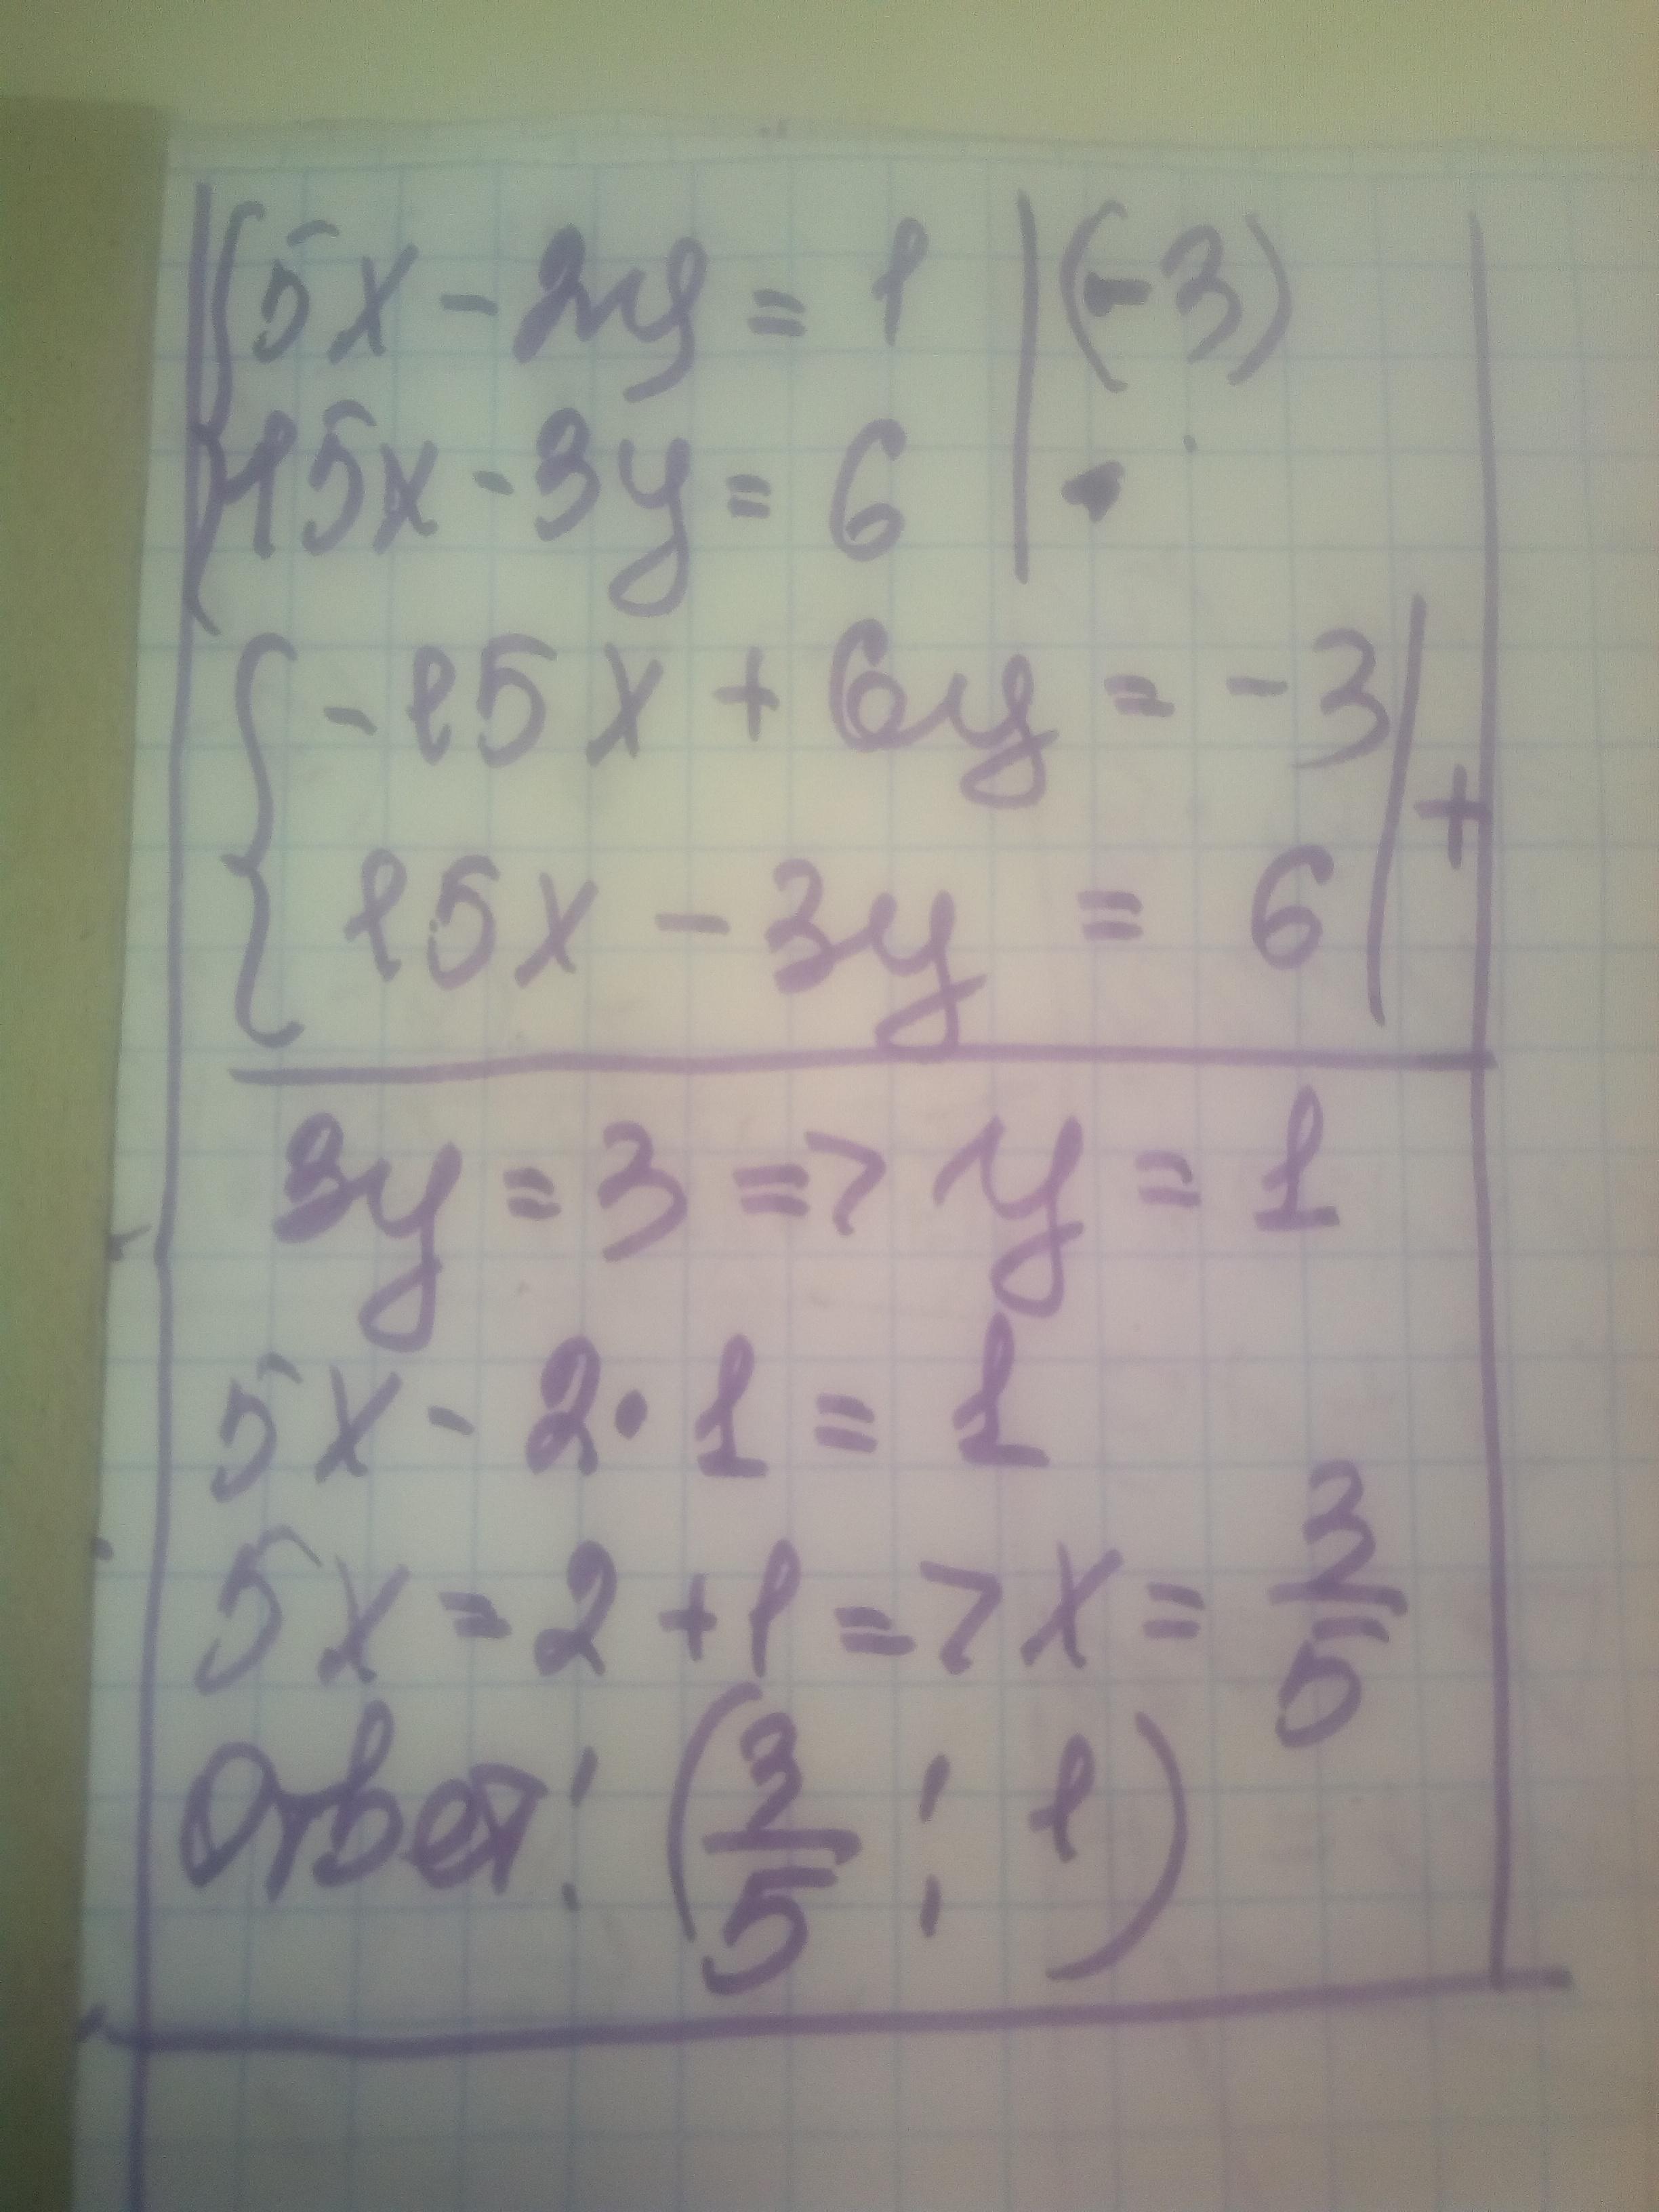 {5x - 2y = 1 | (-3)
15x - 3y = 6 | ·
{-15x + 6y = -3
15x - 3y = 6 | +
3y = 3 => y = 1
5x - 2 · 1 = 1
5x = 2 + 1 => x = 3/5
Ответ: (3/5 ; 1)